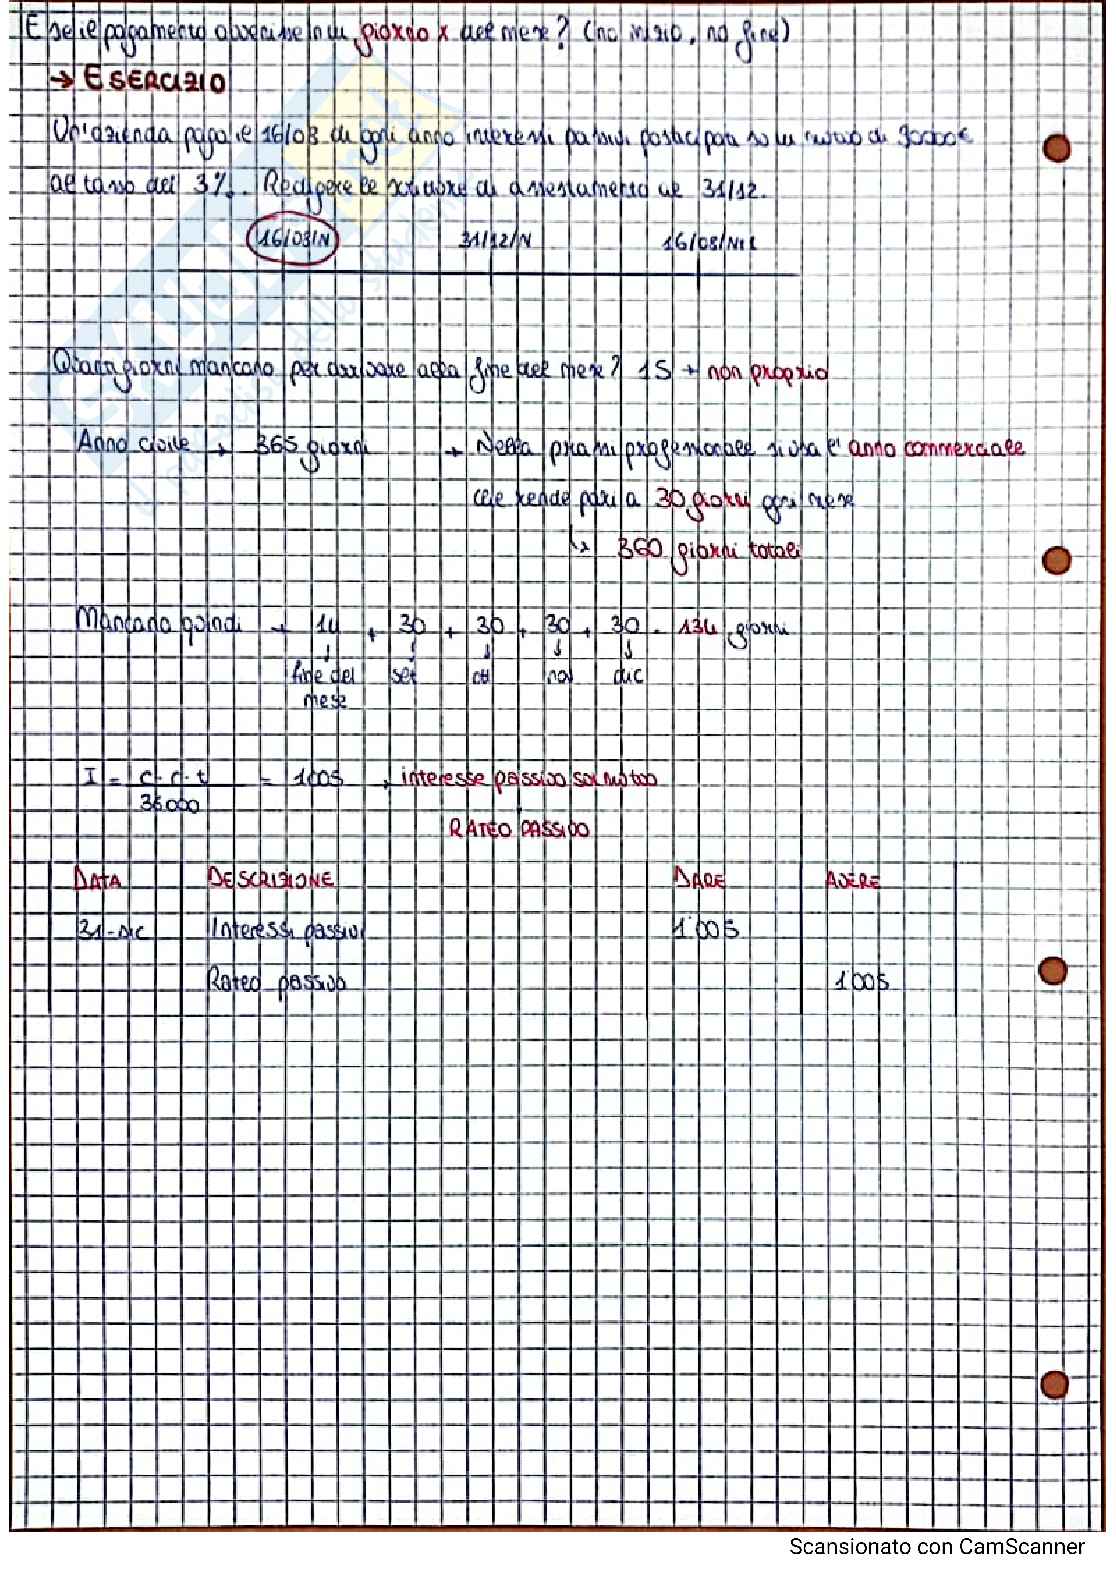 E se il pagamento avvenisse in un giorno x del mese? (no inizio, no fine)
→ ESERCIZIO
Un'azienda paga il 16/08 di ogni anno interessi passivi posticipati su un mutuo di 90000€
al tasso del 3%. Redigere le scritture di assestamento al 31/12.
16/08/N 31/12/N 16/08/N+1
Quanti giorni mancano per arrivare alla fine del mese? 15 → non proprio
Anno civile → 365 giorni → Nella prassi professionale si usa l'anno commerciale
che rende pari a 30 giorni ogni mese
↳ 360 giorni totali
Mancano quindi → 14 + 30 + 30 + 30 + 30 = 134 giorni
↓ ↓ ↓ ↓ ↓
fine del set ott nov dic
mese
I = C · r · t = 1005 → interesse passivo sul mutuo
36000
RATEO PASSIVO
DATA DESCRIZIONE DARE AVERE
31-dic Interessi passivi 1005
Rateo passivo 1005
Scansionato con CamScanner